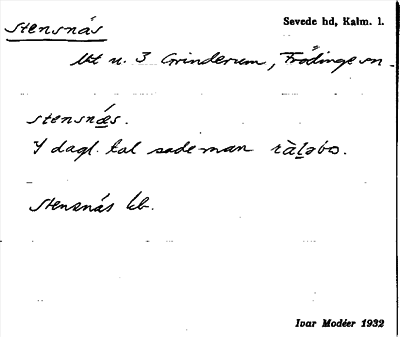 Stensnäs
Sevede hd, Kalm. l.
Utt u. 3 Grinderum, Frödinge sn.
stensnæs.
I dagl. tal sade man ràləbo.
Stensnäs kb.
Ivar Modéer 1932